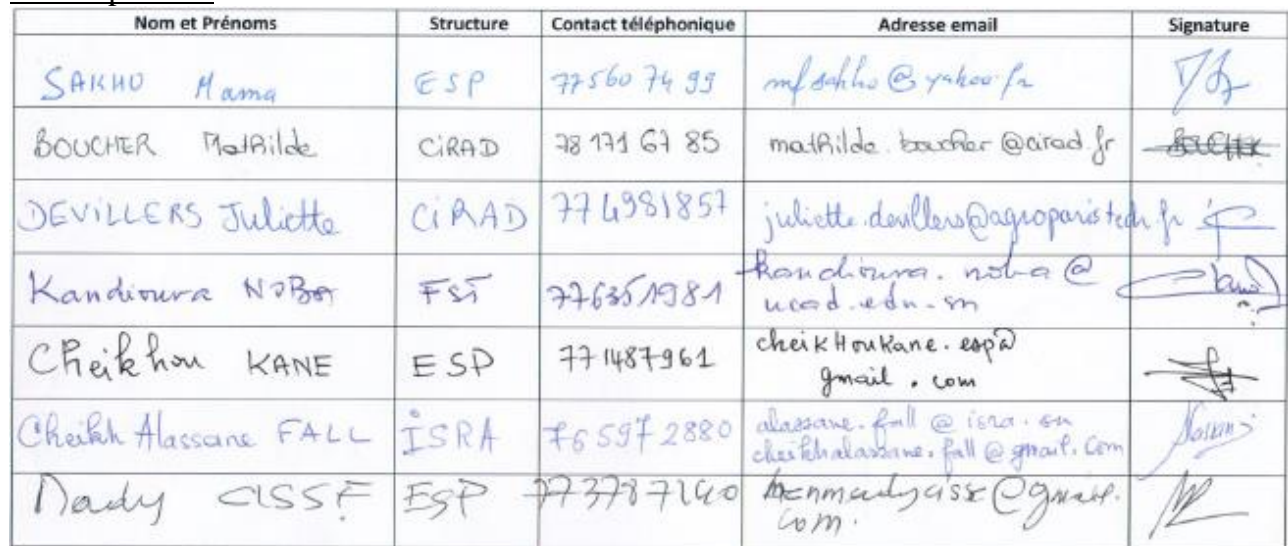 Nom et Prénoms Structure Contact téléphonique Adresse email Signature
SAKHO Mama ESP 77 560 74 99 mfsakho@yahoo.fr
BOUCHER Mathilde CIRAD 78 171 67 85 mathilde.boucher@cirad.fr BOUCHER
DEVILLERS Juliette CIRAD 774981857 juliette.devillers@agroparistech.fr
Kandioura NOBA FST 776351981 kandioura.noba@
ucad.edu.sn
Cheikhou KANE ESP 771487961 cheikHouKane.esp@
gmail.com
Cheikh Alassane FALL ISRA 76 597 2880 alassane.fall@isra.sn
cheikhalassane.fall@gmail.com
CISSE ESP 773787140 @gmail.
com.